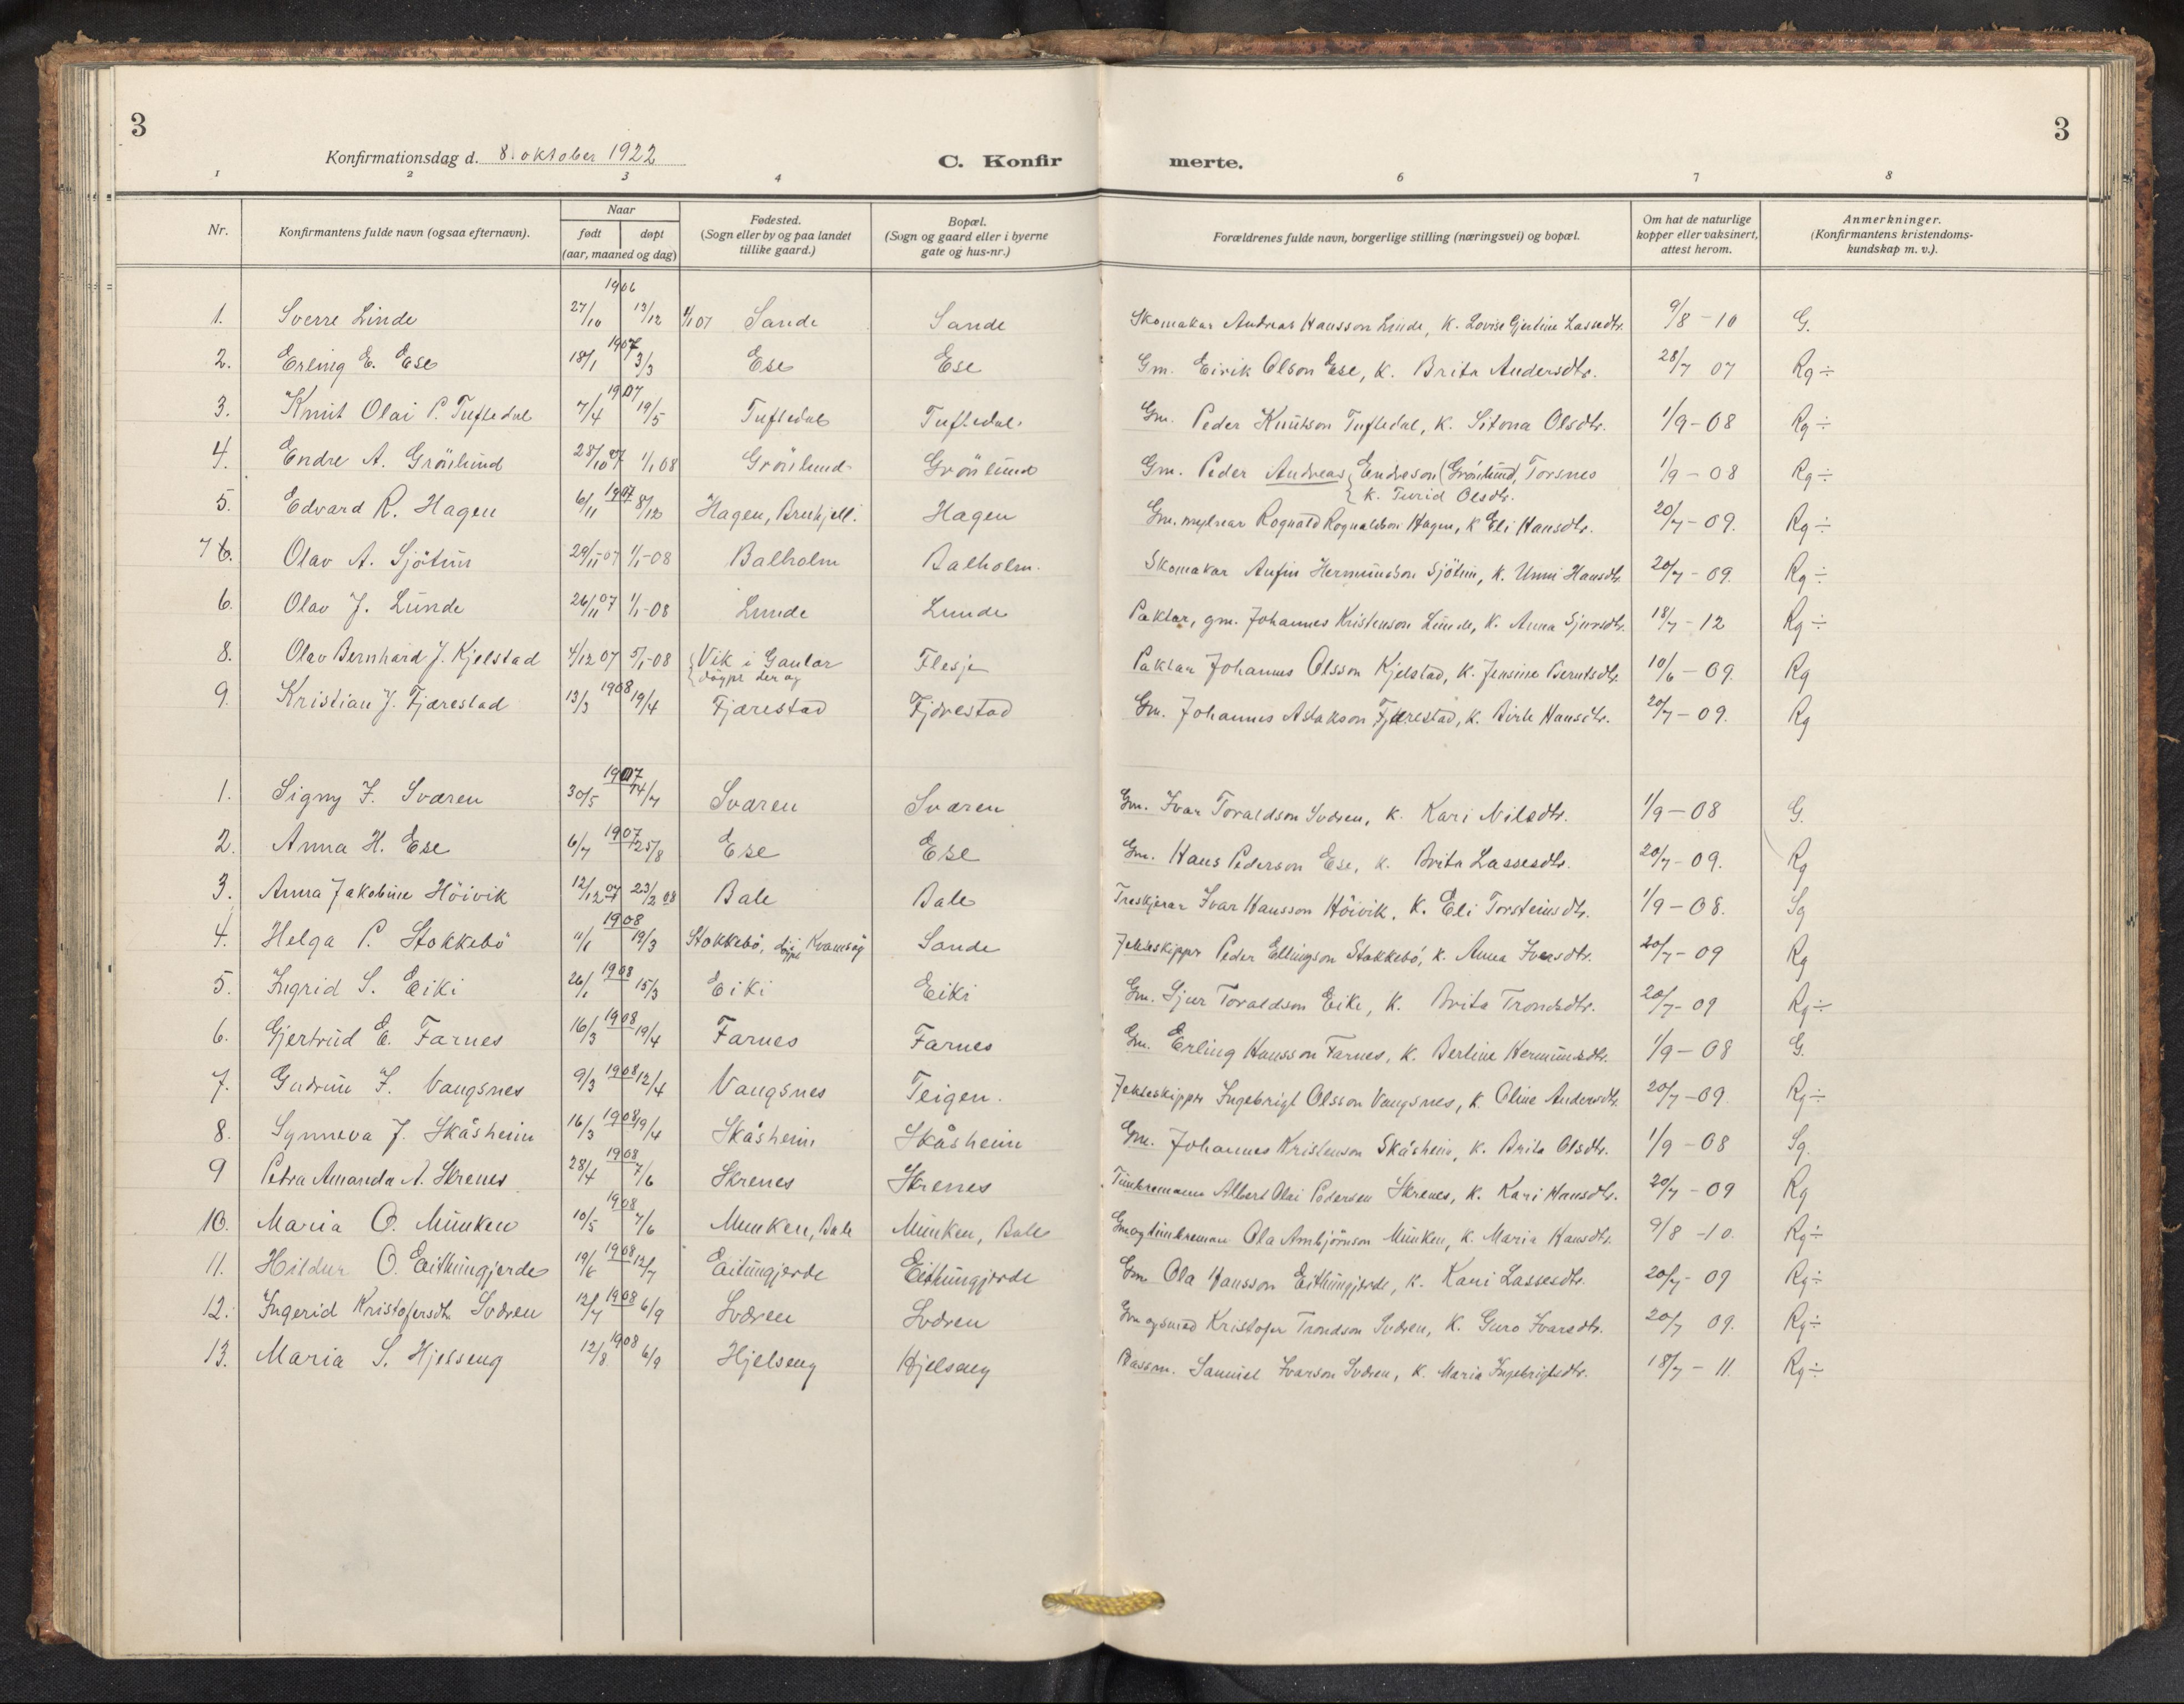 3
3
Konfirmationsdag d. 8. oktober 1922
C. Konfir merte.
1 2 3 4 6 7 8
Nr.
Konfirmantens fulde navn (ogsaa efternavn).
Naar
født døpt
(aar, maaned og dag)
Fødested.
(Sogn eller by og paa landet
tillike gaard.)
Bopæl.
(Sogn og gaard eller i byerne
gate og hus-nr.)
Forældrenes fulde navn, borgerlige stilling (næringsvei) og bopæl.
Om hat de naturlige
kopper eller vaksinert,
attest herom.
Anmerkninger.
(Konfirmantens kristendoms-
kundskap m. v.).
1906
1. Sverre Linde 27/10 13/12 07 Sande Sande Skomakar Andreas Hansson Linde, K. Lovise Gjertine Lassedtr. 9/8 - 10 G.
1907
2. Erling E. Ese 18/1 3/3 Ese Ese Gm. Eirik Olson Ese, K. Brita Andersdtr. 28/7 07 Rg ÷
1907
3. Knut Olai P. Tuftedal 7/4 19/5 Tuftedal Tuftedal. Gm. Peder Knutson Tuftedal, K. Olsdtr. 1/9 - 08 Rg ÷
4. Endre A. Grönlund 28/10 07 1/1 08 Grönlund Grönlund Gm. Peder Andreas Endreson (Grönlund), Torsnes 1/9 - 08 Rg ÷
K. Turid Olsdtr.
1907
5. Edvard R. Hagen 6/11 8/12 Hagen, Hagen Gm. Rognald Rognaldson Hagen, K Eli Hansdtr. 20/7 - 09. Rg ÷
7 6. Olav A. Sjötun 29/11 - 07 1/1 - 08 Balholm Balholm. Skomakar Anfin Hermundson Sjötun, K. Unni Hansdtr. 20/7 - 09. Rg ÷
6. Olav J. Lunde 26/11 07 1/1 - 08 Lunde Lunde Paktar, gm. Johannes Kristenson Lunde, K. Anna Sjursdtr. 18/7 - 12 Rg ÷
8. Olav Bernhard J. Kjelstad 4/12 07 5/1 - 08 Vik i Gaular Flesje Paktar Johannes Olsson Kjelstad, K. Jensine Berntsdtr. 10/6 - 09. Rg
døypt der og
1908
9. Kristian J. Fjærestad 13/3 19/4 Fjærestad Fjærestad Gm. Johannes Aslakson Fjærestad, K. Birte Hansdtr. 20/7 - 09. Rg
1907
1. Signy I. Sværen 30/5 14/7 Sværen Sværen Gm. Ivar Toraldson Sværen, K. Kari Nilsdtr. 1/9 - 08 G.
1907
2. Anna H. Ese 6/7 25/8 Ese Ese Gm. Hans Pederson Ese, K. Brita Lassesdtr. 20/7 - 09. Rg
3. Anna Jakobine Höivik 12/12 07 23/2 08 Bale Bale Treskjerar Ivar Hansson Höivik, K. Eli Torsteinsdtr. 1/9 - 08. Sg
1908
4. Helga P. Stokkebö 19/3 Stokkebö, døypt Kvamsøy Sande Jekteskippr Peder Ellingson Stokkebö, K. Anna Iversdtr. 20/7 - 09 Rg
1908
5. Ingrid S. Eiki 26/1 15/3 Eiki Eiki Gm. Sjur Toraldson Eike, K. Brita Trondsdtr. 20/7 - 09 Rg ÷
1908
6. Gjertrud E. Farnes 16/3 19/4 Farnes Farnes Gm. Erling Hansson Farnes, K. Bertine Hermundsdtr. 1/9 - 08 G.
1908
7. Gudrun I. Vangsnes 9/3 12/4 Vangsnes Teigen. Jekteskippr Ingebrigt Olsson Vangsnes, K. Oline Andersdtr. 20/7 - 09. Rg ÷
1908
8. Synneva J. Skåsheim 16/3 19/4 Skåsheim Skåsheim Gm. Johannes Kristenson Skåsheim, K. Brita Olsdtr. 1/9 - 08 Sg.
1908
9 Petra Amanda A. Skrenes 28/4 7/6 Skrenes Skrenes Timbremann Albert Olai Pedersen Skrenes, K. Kari Hansdtr. 20/7 - 09 Rg
1908
10. Maria O. Munken 10/5 7/6 Munken, Bale Munken, Bale Gm og timbreman Ola Arnbjörnson Munken, K. Maria Hansdtr. 9/8 - 10. Rg ÷
1908
11. Hildur O. Eithungjerde 19/6 12/7 Eitungjerde Eithungjerde Gm Ola Hansson Eithungjerde, K. Kari Lassesdtr. 20/7 - 09 Rg ÷
1908
12. Ingerid Kristofersdtr. Sværen 12/7 6/9 Sværen Sværen Gm og smed Kristofer Trondson Sværen, K. Guro Ivarsdtr. 20/7 09. Rg ÷
1908
13. Maria S. Hjelseng 12/8 6/9 Hjelseng Hjelseng Plassm. Samuel Ivarson Sværen, K. Maria Ingebrigtsdtr. 18/7 - 11. Rg ÷